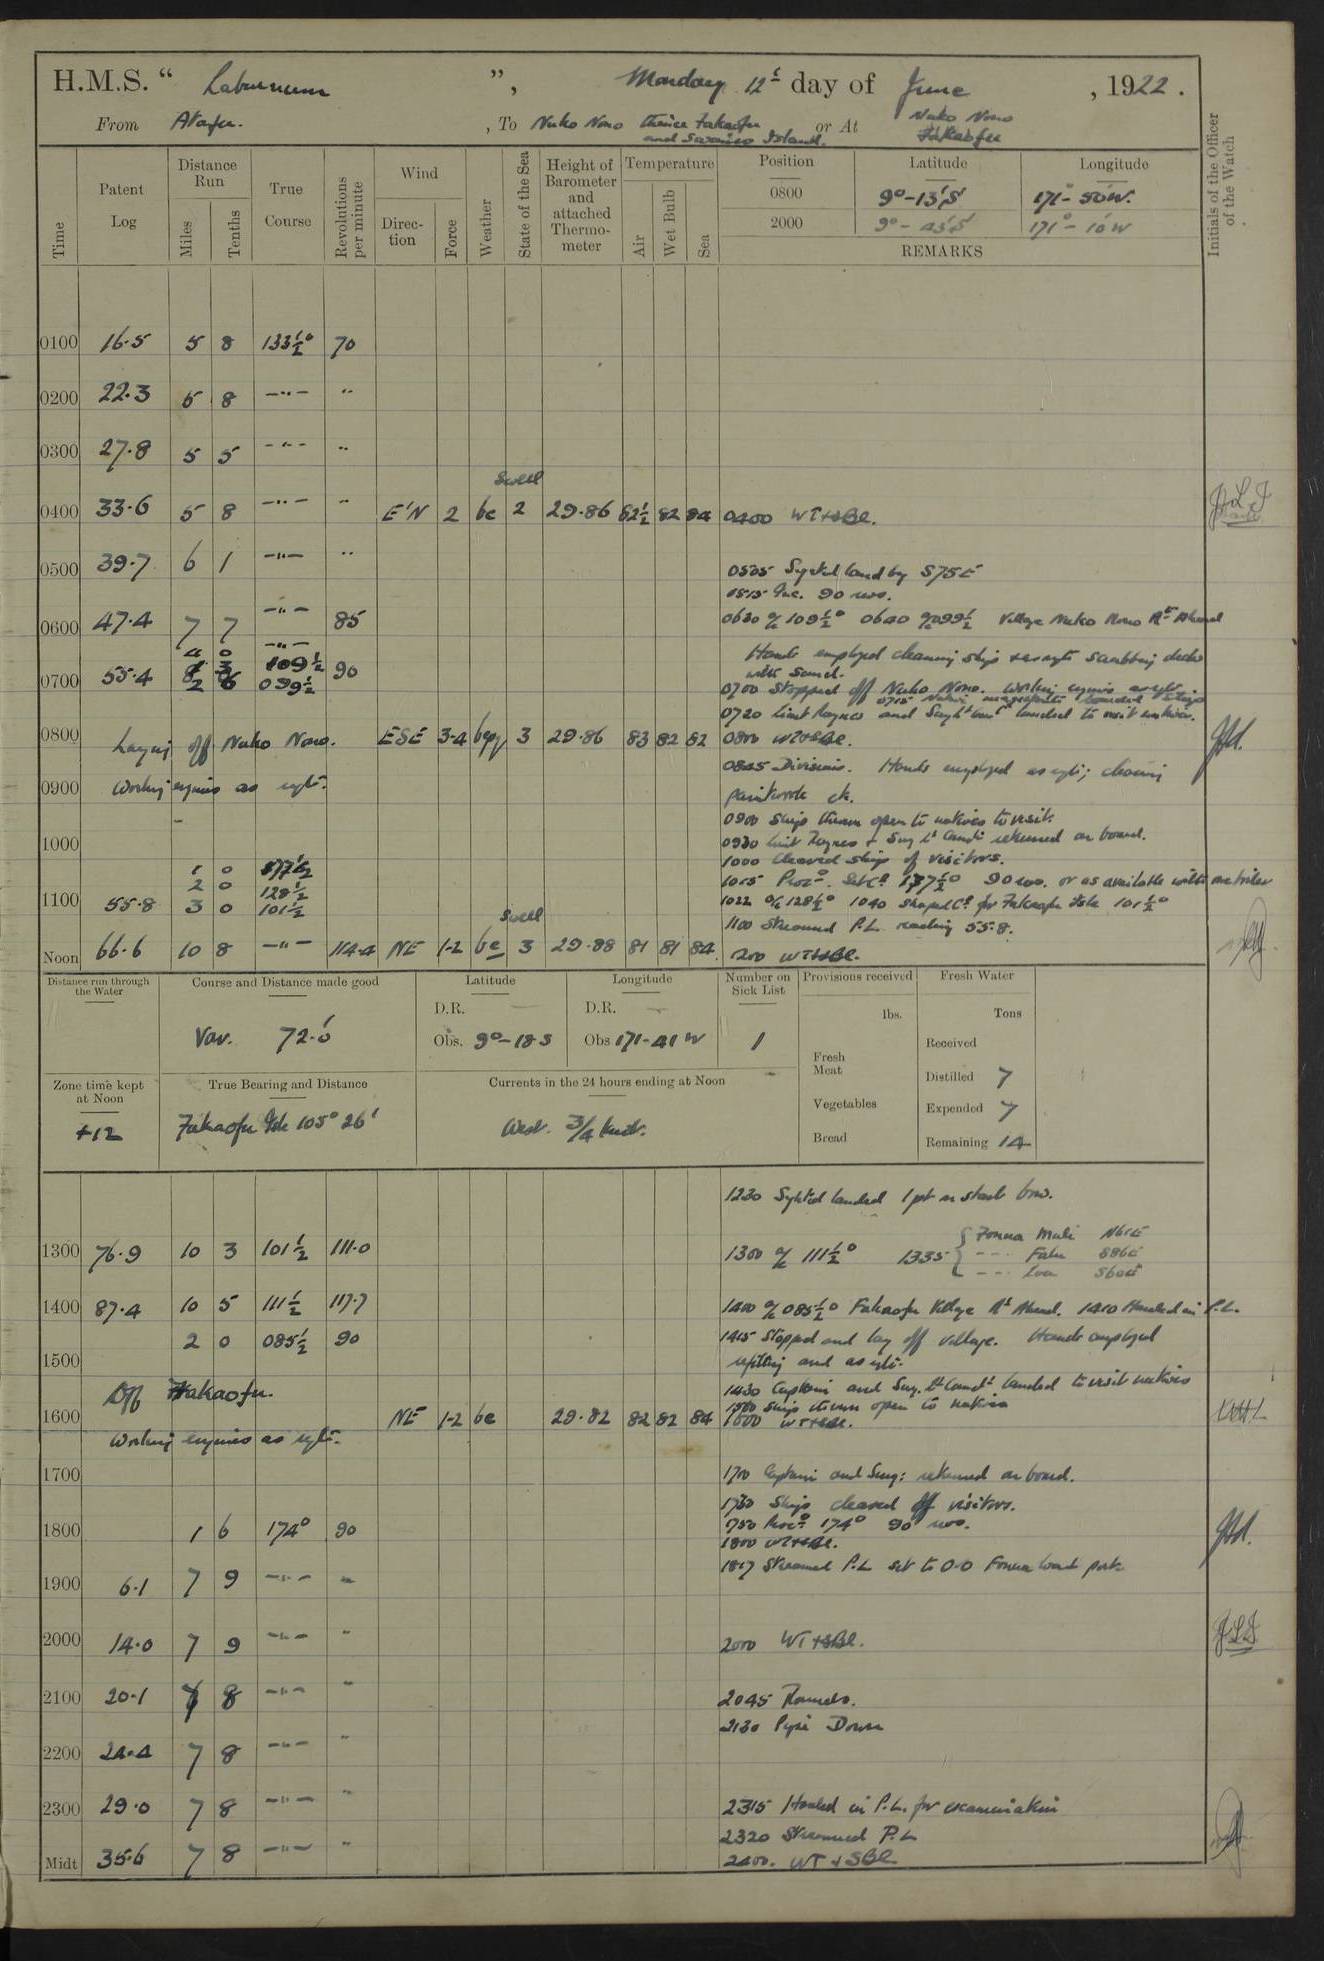 H.M.S. " Laburnum ", Monday 12th day of June, 1922.
From Atafu. , To Nuko Nono thence Fakaofu and Swains Island. or At Nuko Nono Fakaofu
Time Patent Log Distance Run Miles Tenths True Course Revolutions per minute Wind Direction Force Weather State of the Sea Height of Barometer and attached Thermometer Temperature Air Wet Bulb Sea Position Latitude Longitude Initials of the Officer of the Watch
0800 9°-13'S 171°-50'W.
2000 9°-43'S 171°-10'W
REMARKS
0100 16.5 5 8 133½° 70
0200 22.3 5 8 —"— "
0300 27.8 5 5 —"— "
Swell
0400 33.6 5 8 —"— " E'N 2 bc 2 29.86 82½ 82 84 0400 WT+SBl.
0500 39.7 6 1 —"— " 0505 Sighted land by S75E
0515 Inc. 90 revs.
0600 47.4 7 7 —"— 85 0630 a/c 109½° 0640 a/c 099½ Village Nuko Nono Rt Ahead
4 0 —"— Hands employed cleaning ship + as reqte scrubbing decks
3 109½ with sand.
0700 55.4 2 6 099½ 90 0700 Stopped off Nuko Nono. Working engines as reqte
0715 Native magistrate boarded ship
0720 Lieut Raynes and Surgt Comt landed to visit natives.
0800 Laying off Nuko Nono. ESE 3-4 3 29.86 83 82 82 0800 WT+SBl.
0845 Divisions. Hands employed as reqte; cleaning
0900 Working engines as reqte. paintwork etc.
0900 Ship thrown open to natives to visit.
1000 0930 Lieut Raynes + Surg Lt Comdr returned on board.
1000 Cleared ship of visitors.
1 0 177½
2 0 128½ 1015 Procd. Set Co 177½° 90 revs. or as available with one boiler
1100 55.8 3 0 101½ 1022 a/c 128½° 1040 Shaped Co for Fakaofu Isle 101½°
Swell 1100 Streamed P.L. reading 55.8.
Noon 66.6 10 8 —"— 114.4 NE 1-2 bc 3 29.88 81 81 84 1200 WT+SBl.
Distance run through the Water Course and Distance made good Latitude Longitude Number on Sick List Provisions received Fresh Water
D.R. — D.R. — lbs. Tons
Var. 72.0' Obs. 9°-18 S Obs 171-41 W 1 Received
Fresh Meat
Zone time kept at Noon True Bearing and Distance Currents in the 24 hours ending at Noon Distilled 7
Vegetables Expended 7
+12 Fakaofu Isle 105° 26' West. ¾ knot. Bread Remaining 14
1230 Sighted landed 1 pt on starb bow.
1300 76.9 10 3 101½ 111.0 1300 a/c 111½° 1335 { Fonua Muli N61E
--- Fala S86E
--- Loa S60E
1400 87.4 10 5 111½ 117.7 1400 a/c 085½° Fakaofu Village Rt Ahead. 1410 Hauled in P.L.
2 0 085½ 90 1415 Stopped and lay off village. Hands employed
1500 refitting and as reqte.
Off Fakaofu. 1430 Captain and Surg. Lt Comdt landed to visit natives
1500 Ship thrown open to natives
1600 NE 1-2 bc 29.82 82 82 84 1600 WT+SBl.
Working engines as reqte.
1700 1700 Captain and Surg: returned on board.
1730 Ship cleared off visitors.
1750 Procd 174° 90 revs.
1800 1 6 174° 90 1800 WT+SBl.
1817 Streamed P.L set to 0.0 Fonua Loa port
1900 6.1 7 9 —"— "
2000 14.0 7 9 —"— " 2000 WT+SBl. JLJ
2100 20.1 7 8 —"— " 2045 Rounds.
2130 Pipe Down
2200 24.4 7 8 —"— "
2300 29.0 7 8 —"— " 2315 Hauled in P.L. for examination
2320 Streamed P.L
Midt 35.6 7 8 —"— " 2400. WT+SBl